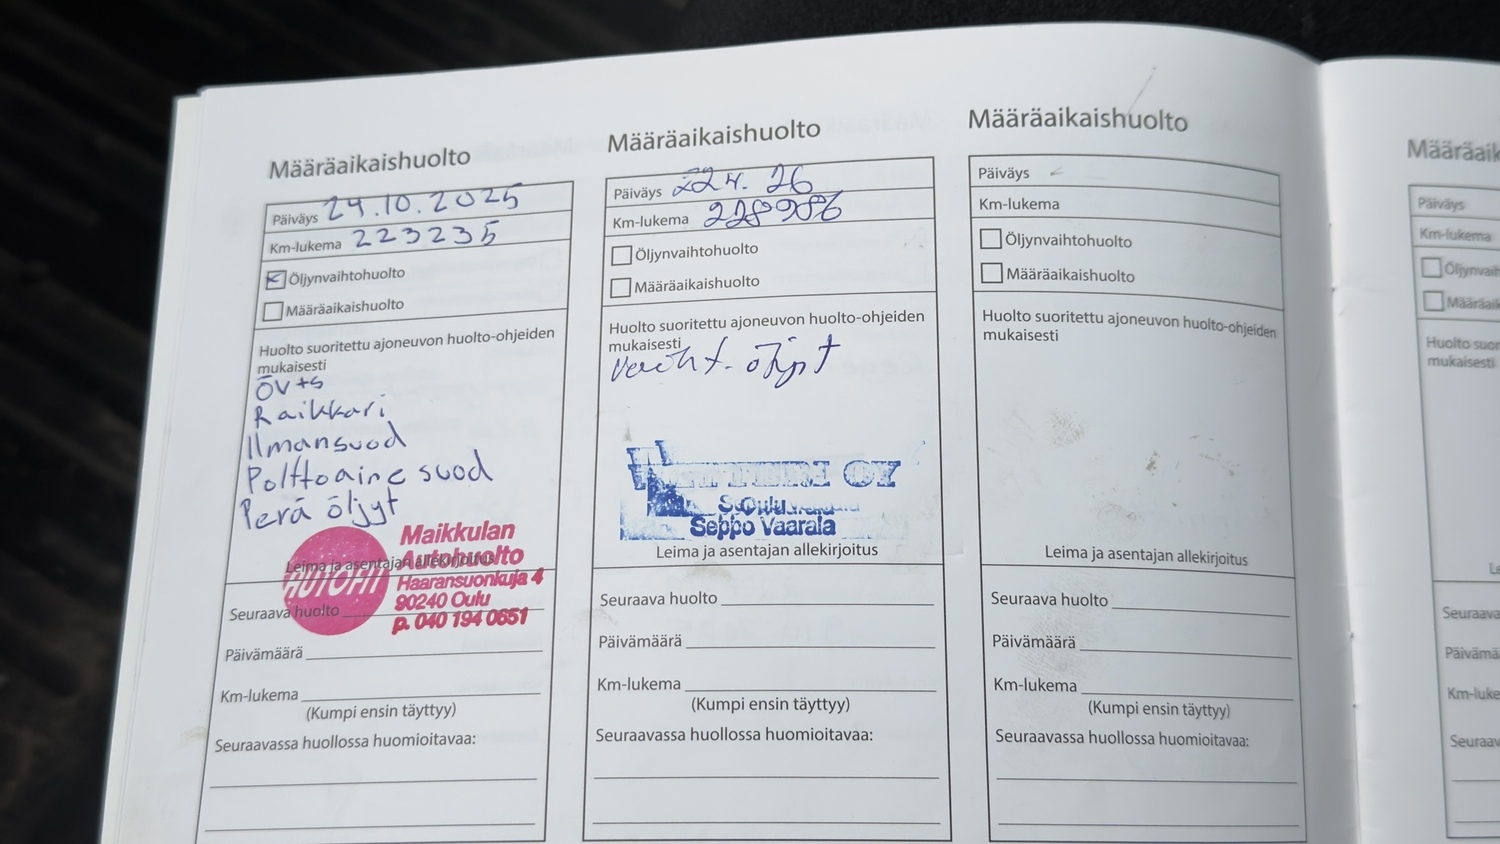 Määräaikaishuolto
Päiväys 29.10.2025
Km-lukema 223235
Öljynvaihtohuolto
Määräaikaishuolto
Huolto suoritettu ajoneuvon huolto-ohjeiden
mukaisesti
ÖV+S
Raikkari
Ilmansuod
Polttoaine suod
Perä öljyt
AUTOFIT
Maikkulan
Autohuolto
Haaransuonkuja 4
90240 Oulu
p. 040 194 0651
Leima ja asentajan allekirjoitus
Seuraava huolto
Päivämäärä
Km-lukema
(Kumpi ensin täyttyy)
Seuraavassa huollossa huomioitavaa:
Määräaikaishuolto
Päiväys 26
Km-lukema 228986
Öljynvaihtohuolto
Määräaikaishuolto
Huolto suoritettu ajoneuvon huolto-ohjeiden
mukaisesti
öljyt
OY
Seppo Vaarala
Leima ja asentajan allekirjoitus
Seuraava huolto
Päivämäärä
Km-lukema
(Kumpi ensin täyttyy)
Seuraavassa huollossa huomioitavaa:
Määräaikaishuolto
Päiväys
Km-lukema
Öljynvaihtohuolto
Määräaikaishuolto
Huolto suoritettu ajoneuvon huolto-ohjeiden
mukaisesti
Leima ja asentajan allekirjoitus
Seuraava huolto
Päivämäärä
Km-lukema
(Kumpi ensin täyttyy)
Seuraavassa huollossa huomioitavaa:
Määräaik
Päiväys
Km-lukema
Öljynvaih
Määräaik
Huolto suor
mukaisesti
Le
Seuraava
Päivämä
Km-luke
Seuraav